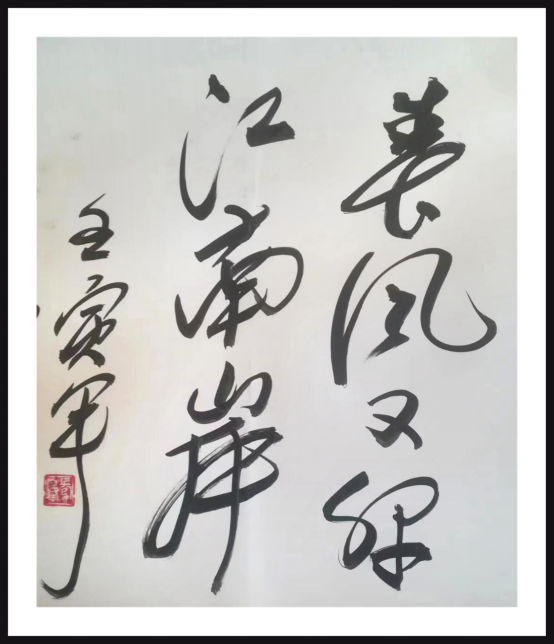 春风又绿
江南岸
壬寅军